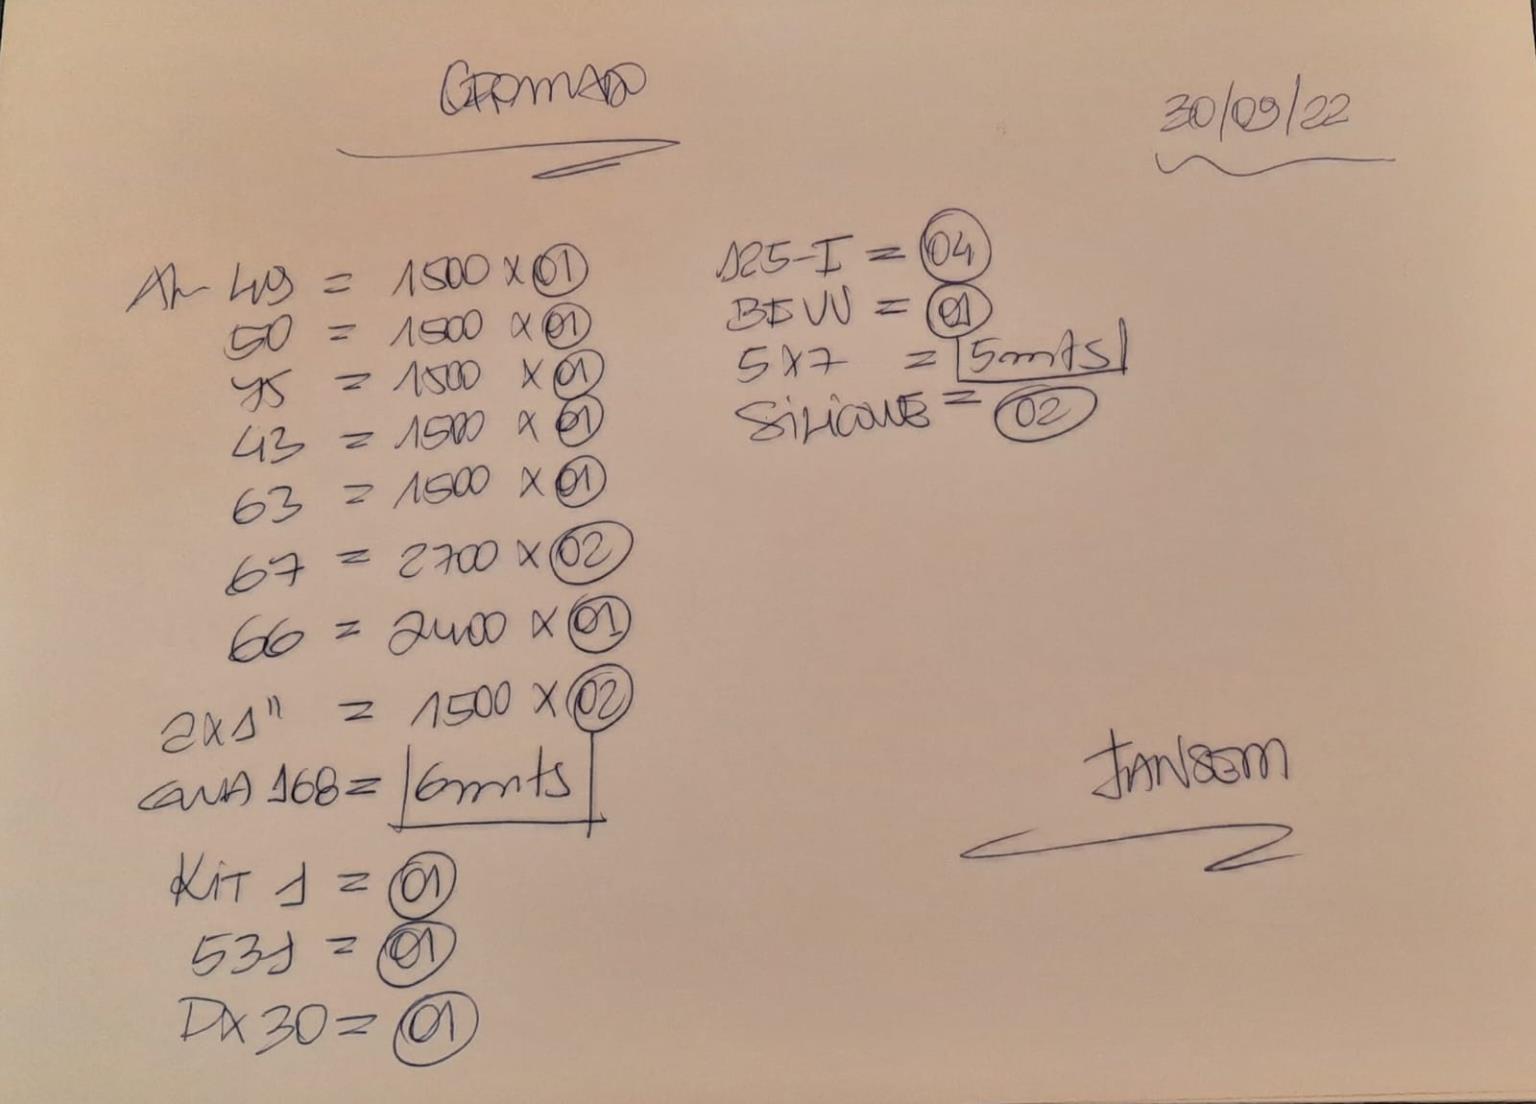 GRAMADO
30/09/22
AL 49 = 1500 X 01
50 = 1500 X 01
45 = 1500 X 01
43 = 1500 X 01
63 = 1500 X 01
67 = 2700 X 02
66 = 2400 X 01
2X1" = 1500 X 02
168 = 6mts
KIT 1 = 01
531 = 01
DX 30 = 01
125-I = 04
= 01
5X7 = 5mts
SILICONE = 02
JANSEM